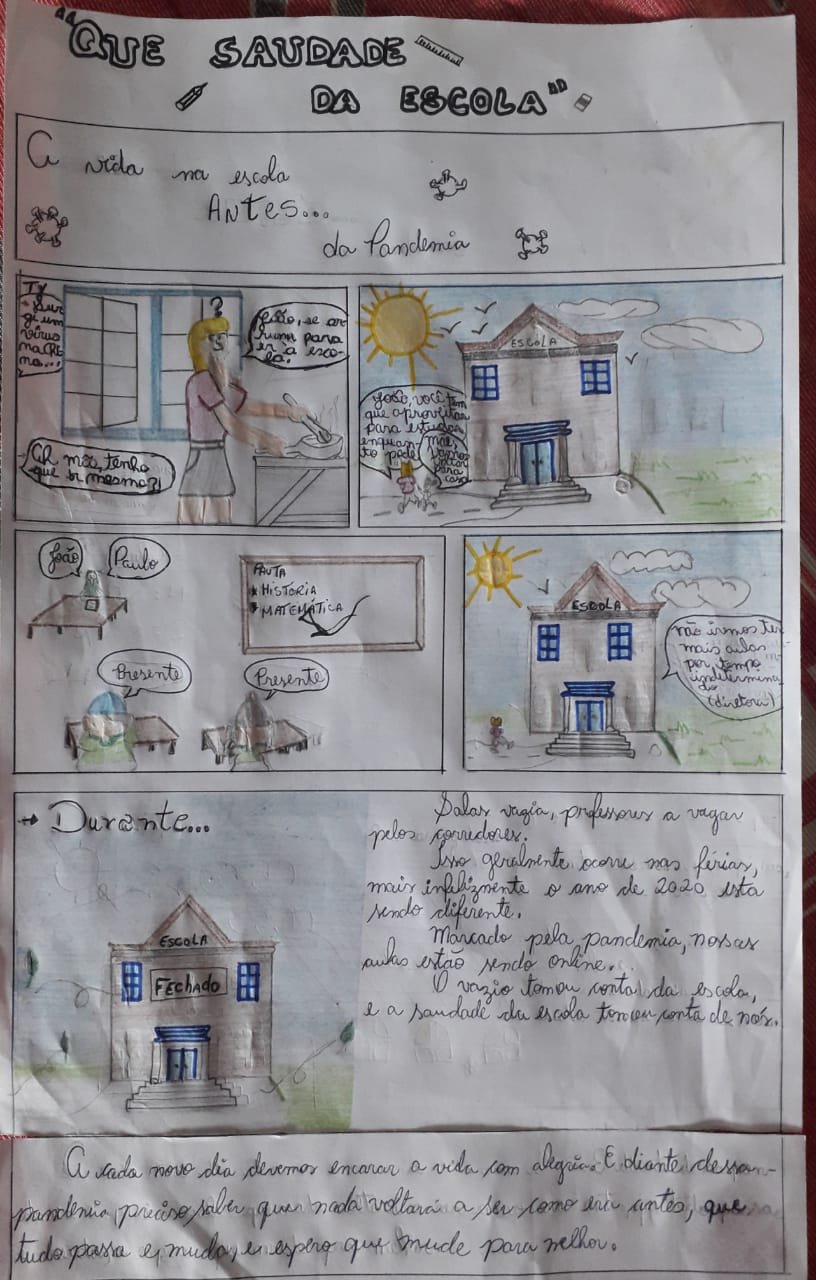 "QUE SAUDADE
DA ESCOLA"
A vida na escola
ANTES...
da Pandemia
TV
Sur
giu um
vírus
na CHI
na...
João, se ar
ruma para
ir à esco-
la!
Ah mãe, tenho
que ir mesmo?!
?
ESCOLA
João, você tem
que aproveitar
para estudar
enquan-
to pode
mãe,
vamos
para
casa
João
Paulo
PAUTA
HISTORIA
MATEMÁTICA
Presente
Presente
ESCOLA
não iremos ter
mais aulas
por tempo
indetermina
do
(diretora)
→ Durante...
ESCOLA
FEchADO
Salas vazia, professores a vagar
pelos corredores.
Isso geralmente ocorre nas férias,
mais infelizmente o ano de 2020 esta
sendo diferente.
Marcado pela pandemia, nossas
aulas estão sendo online.
O vazio tomou conta da escola,
e a saudade da escola tomou conta de nós.
A cada novo dia devemos encarar a vida com alegria. E diante dessa
pandemia preciso saber que nada voltará a ser como era antes, que
tudo passa e muda, e espero que mude para melhor.